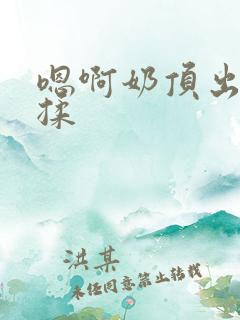 嗯啊奶頂出
揉
洪某
未经同意禁止转载